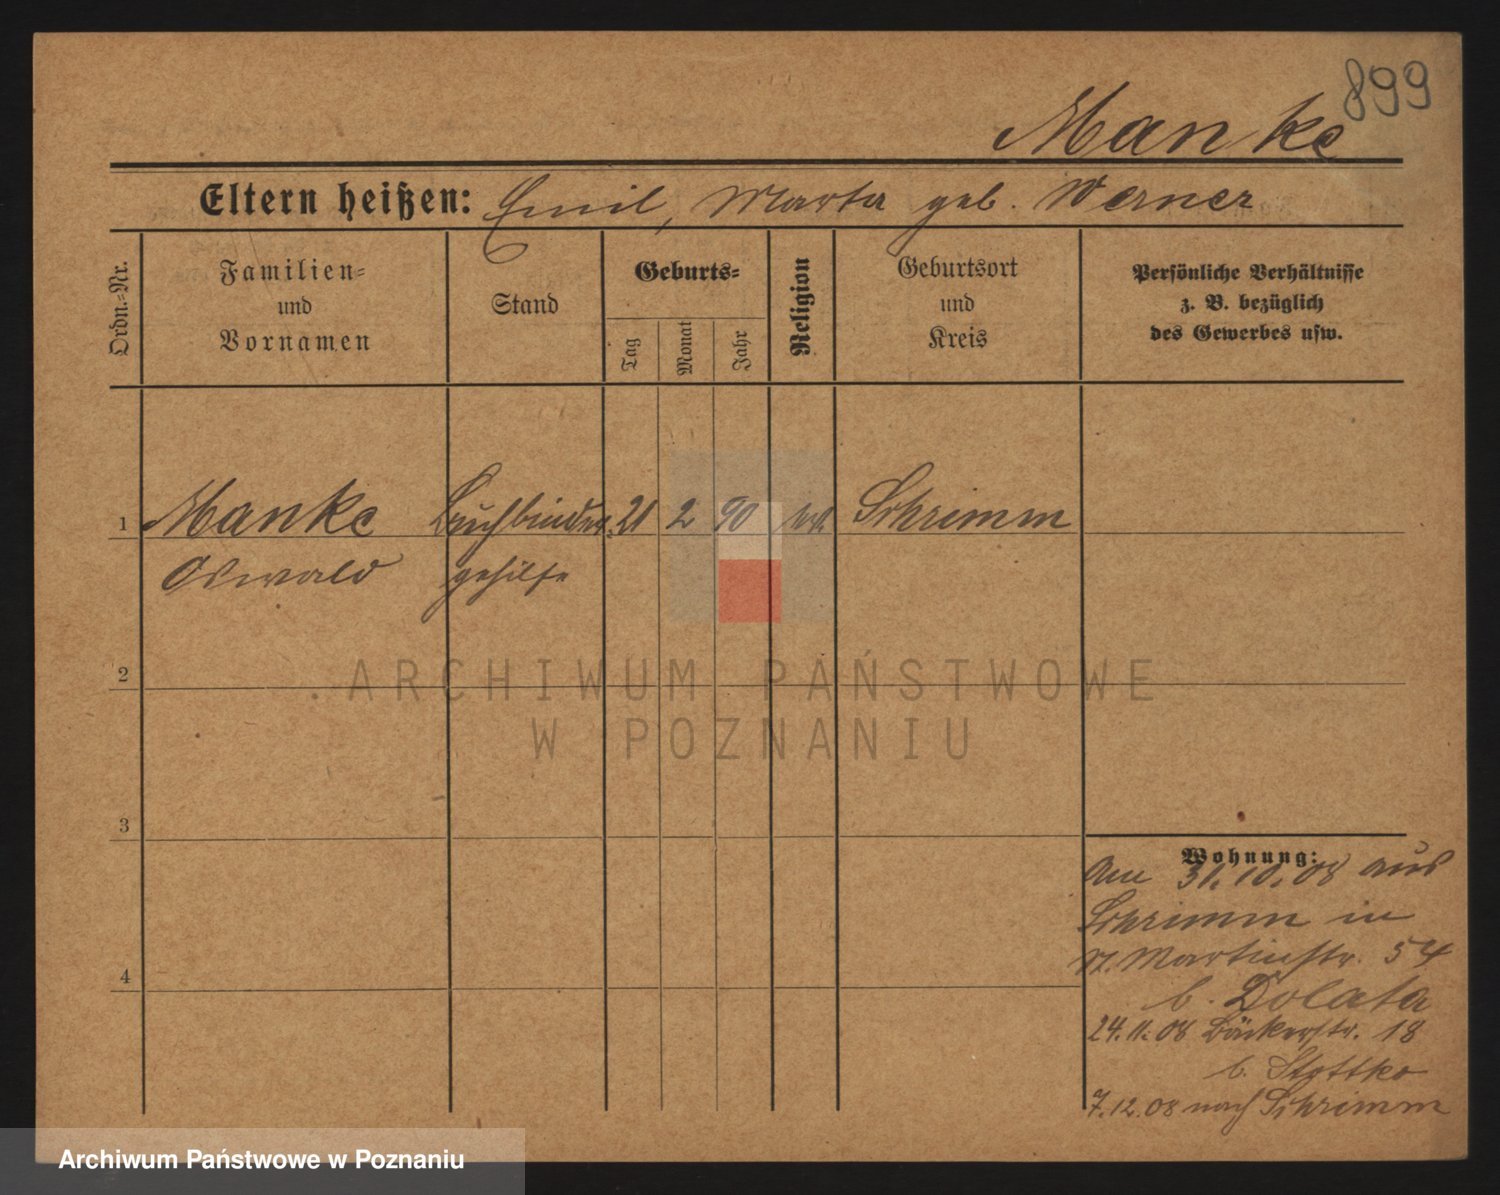 899
Manke
Eltern heißen: Emil, Marta geb. Werner
Ordn.=Nr.
Familien=
und
Vornamen
Stand
Geburts=
Tag
Monat
Jahr
Religion
Geburtsort
und
Kreis
Persönliche Verhältnisse
z. B. bezüglich
des Gewerbes usw.
1 Manke Buchbinder 21 2 90 Schrimm
Oswald gehilfe
2
3
4
Wohnung:
Am 31.10.08 aus
Schrimm in
St. Martinstr. 54
b. Dolata
24.11.08 Bäckerstr. 18
b. Stottko
7.12.08 nach Schrimm
ARCHIWUM PAŃSTWOWE
W POZNANIU
Archiwum Państwowe w Poznaniu